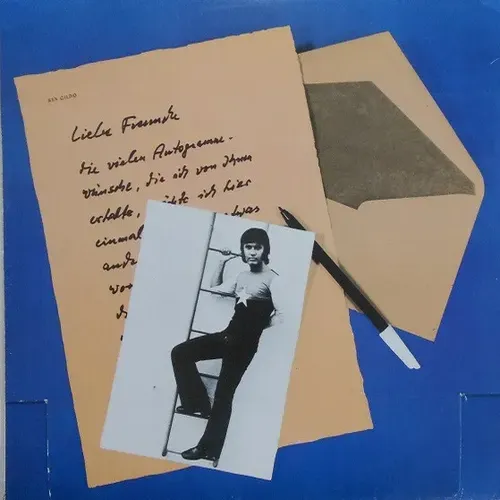 REX GILDO
Liebe Freunde
die vielen Autogramm-
wünsche, die ich von Ihnen
erhalte, möchte ich hier
einmal etwas
ande